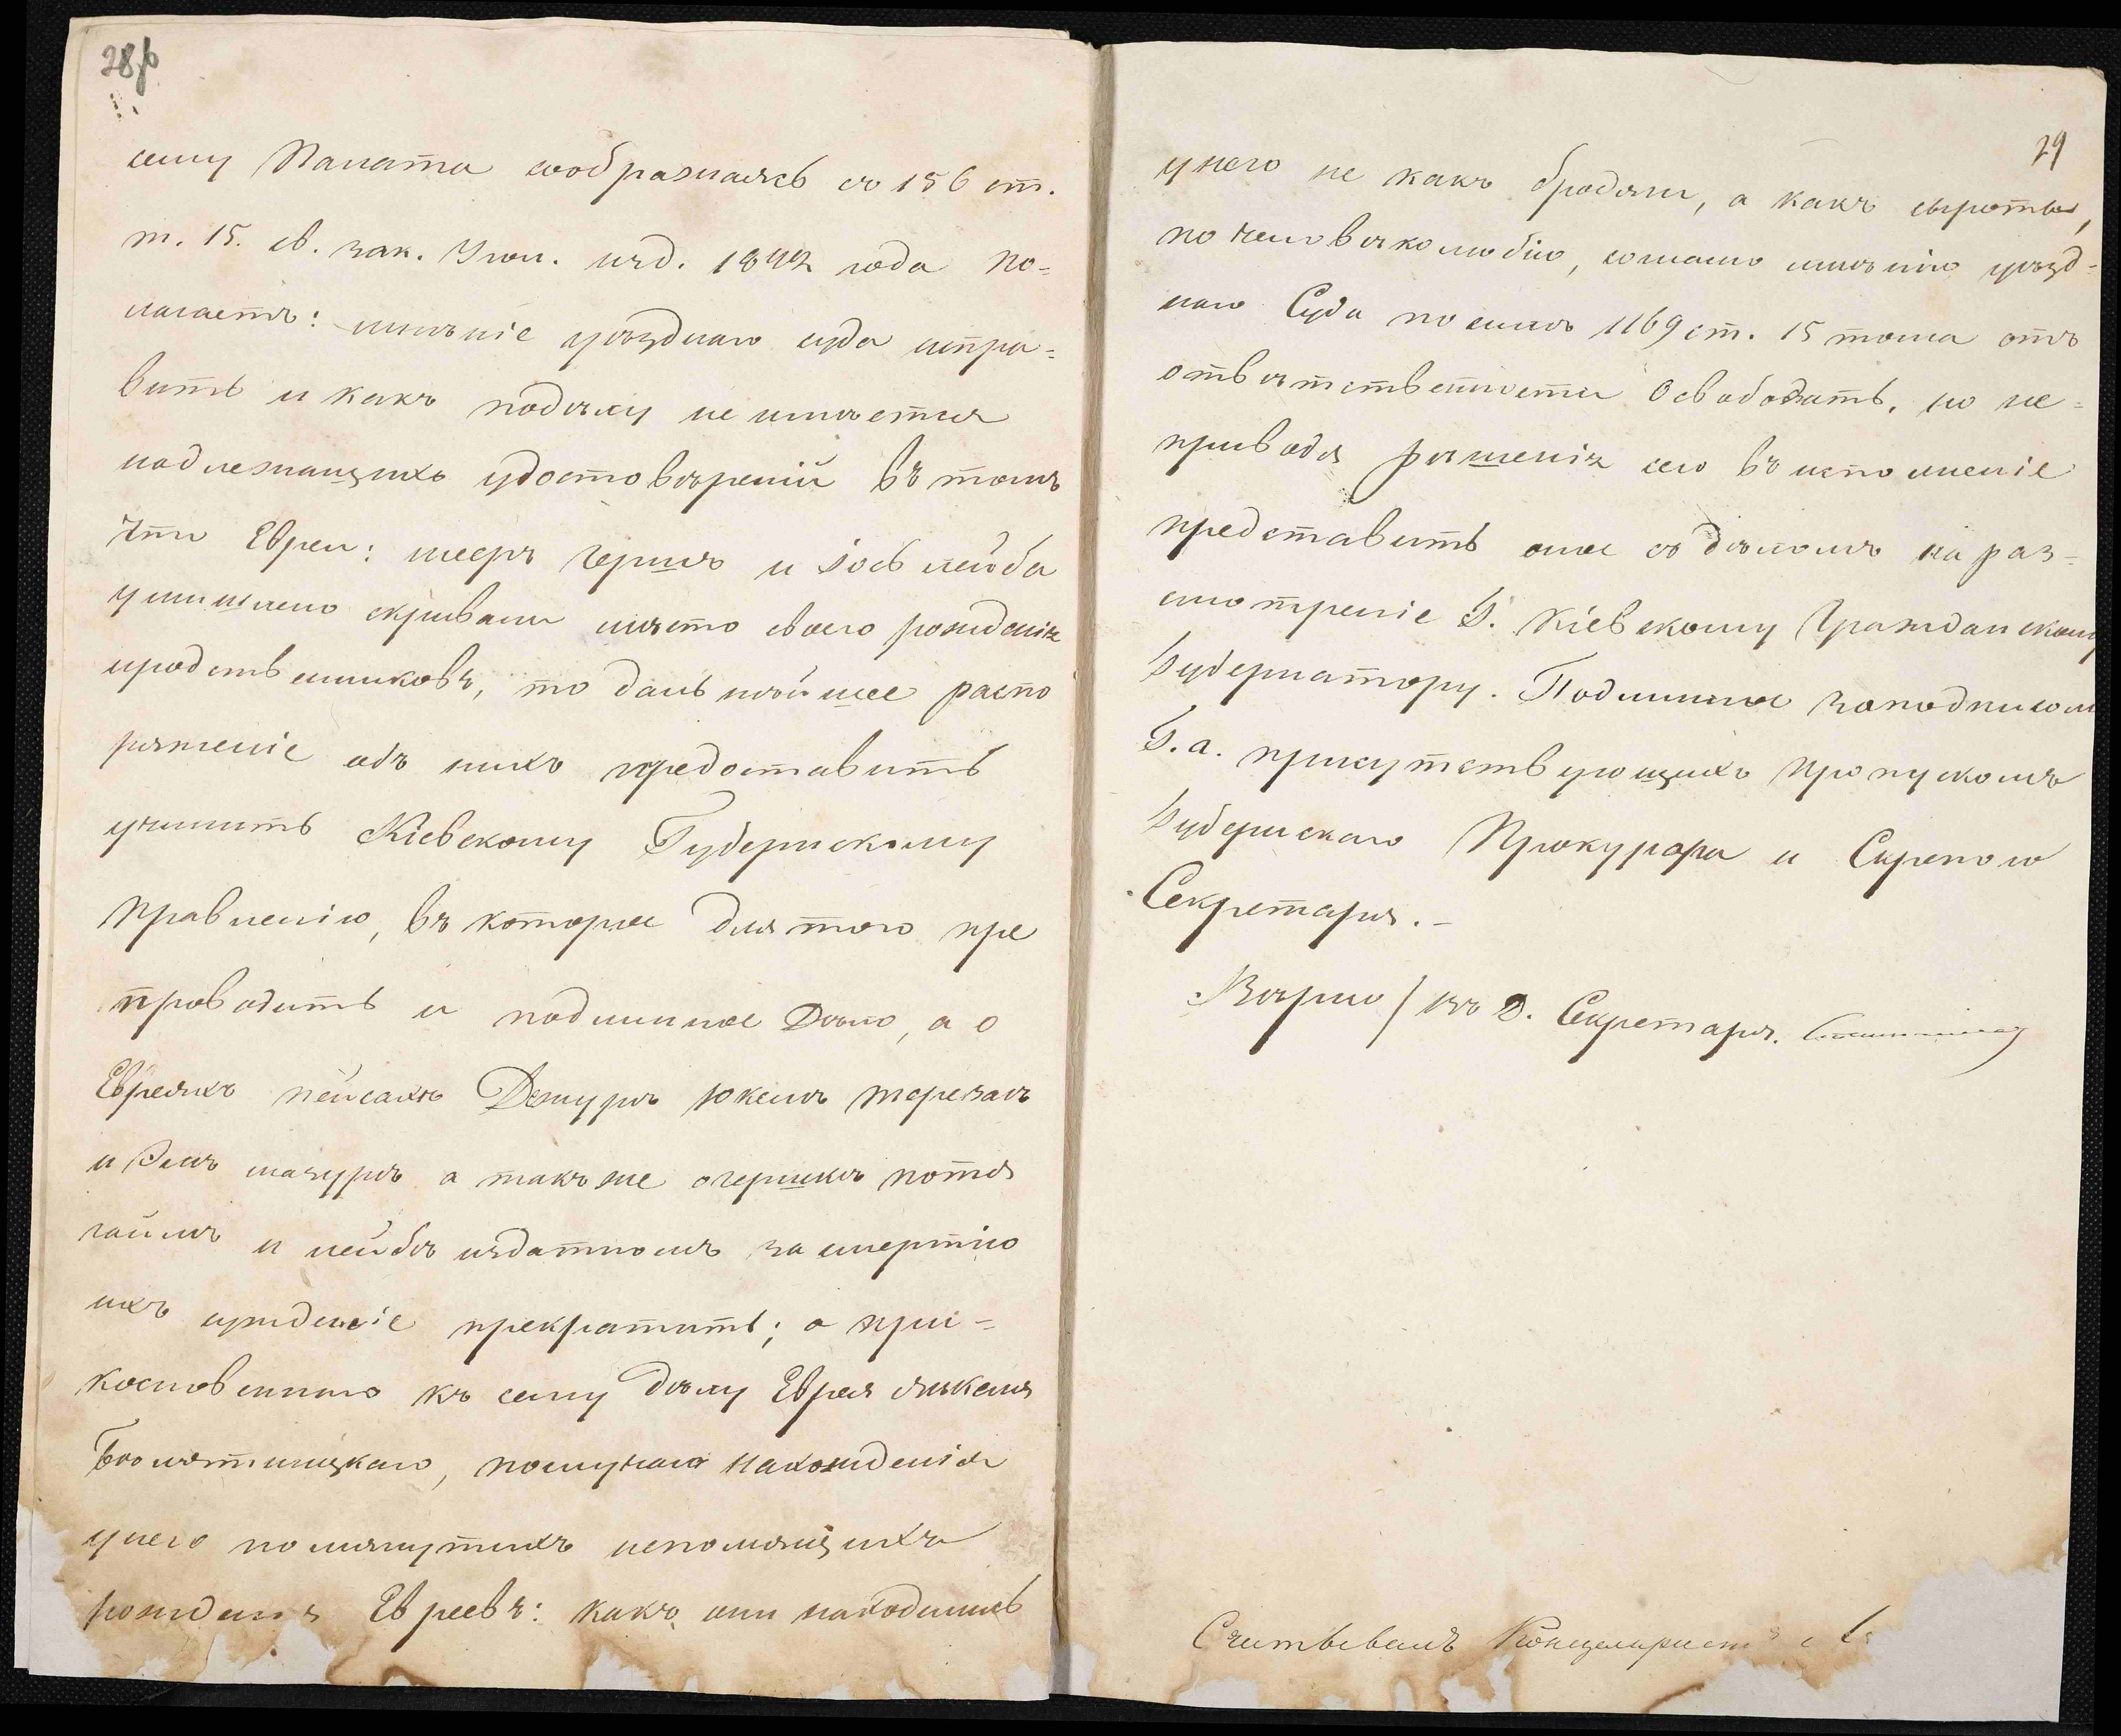 28б
сему Палата соображаясь со 156 ст.
т. 15. св. зак. Угол. изд. 1842 года по=
лагаетъ: мнѣніе уѣзднаго суда испра=
вить и какъ подѣлу не имѣется
надлежащихъ удостовѣреній въ томъ
что Евреи: мееръ гершъ и Іось лейба
умишлено скрывали мѣсто своего рожденія
иродственниковъ, то дальнѣйшее распо
ряженіе объ нихъ предоставить
учинить Кіевскому Губернскому
правленію, въ которое для того пре
проводить и подлинное Дѣло, а о
Евреяхъ пейсахѣ юкелѣ
и мазурѣ а такъ же огершкѣ
и лейбѣ засмертію
ихъ сужденіе прекратить; а при=
косновеннаго къ сему дѣлу Еврея янкеля
Богуславскаго, послучаю нахожденія
унего помянутыхъ непомнящихъ
рожденія Евреевъ: какъ они находились
29
унего не какъ бродяги, а какъ сыроты,
по человѣколюбію, согласно мнѣнію уѣзд-
наго Суда посилѣ 1169 ст. 15 тома отъ
отвѣтственности Освободить, но не=
приводя рѣшенія сего въ исполненіе
представить оное съ дѣломъ на раз=
смотреніе Г. Кіевскому Гражданскому
Губернатору. Подлинное заподписомъ
Г.а. присутствующихъ пропускомъ
Губернскаго Прокурора и Скрепою
Секретаря.-
Вѣрно / въ Д. Секретаря.
Считывалъ Канцеляристъ